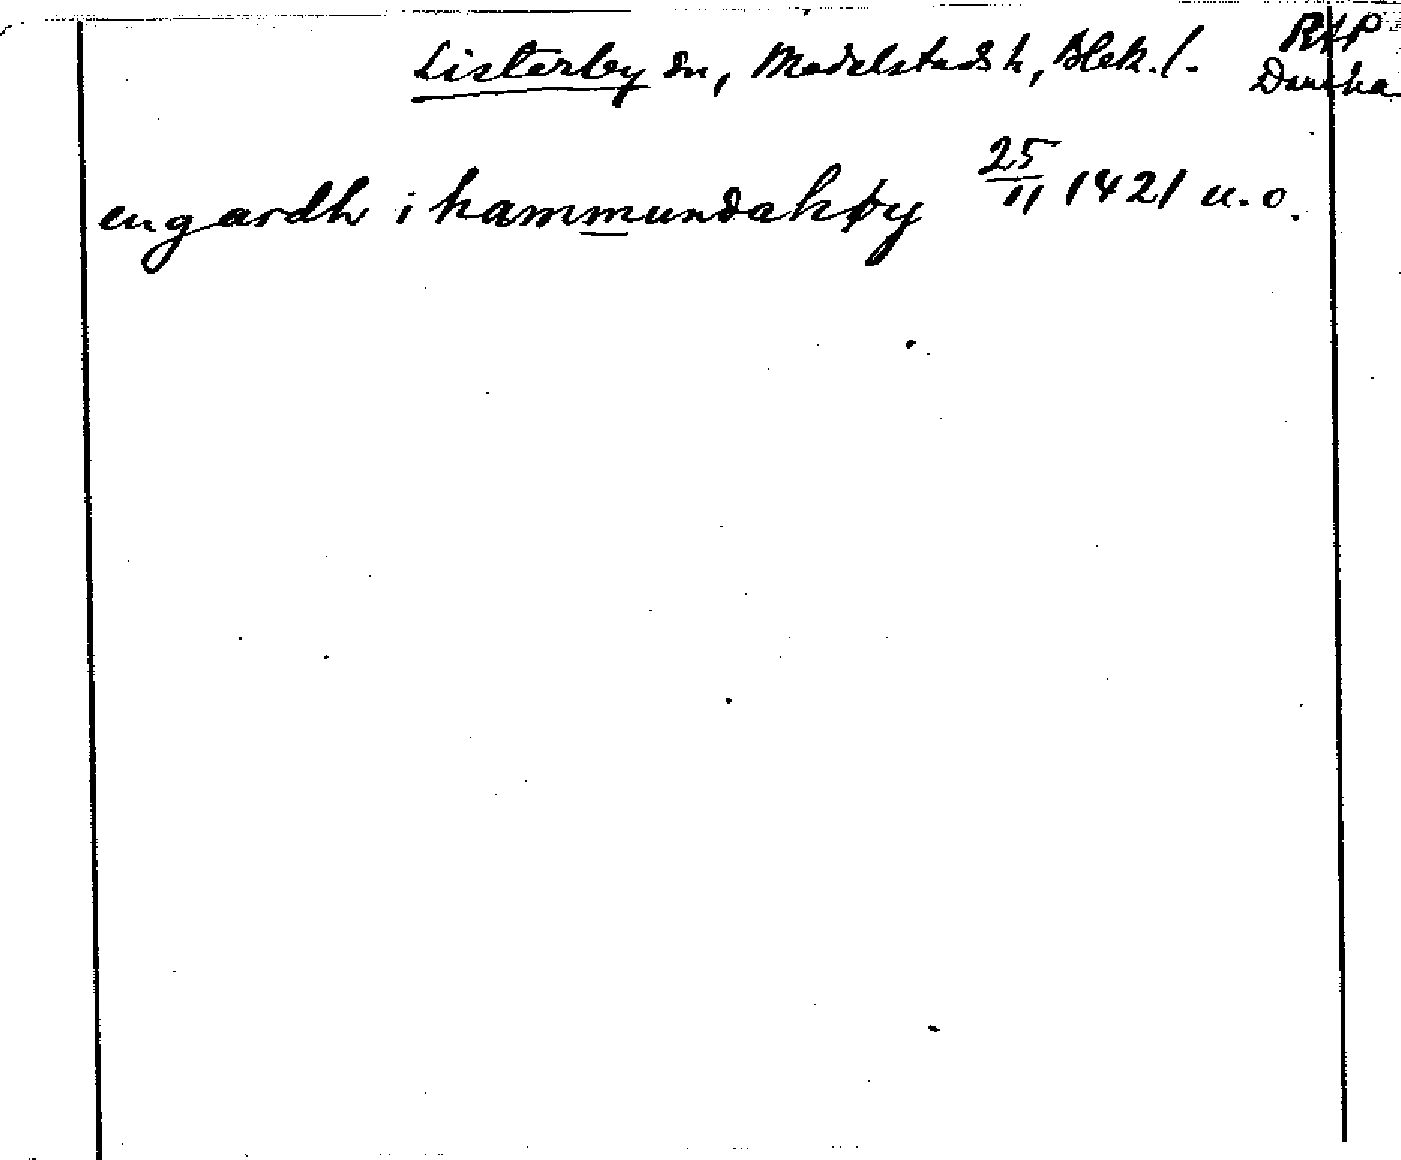 Listerby sn, Medelstads h, Blek. l.
RAP
Danska
en gardh i hammundahøy 25/11 1421 u.o.